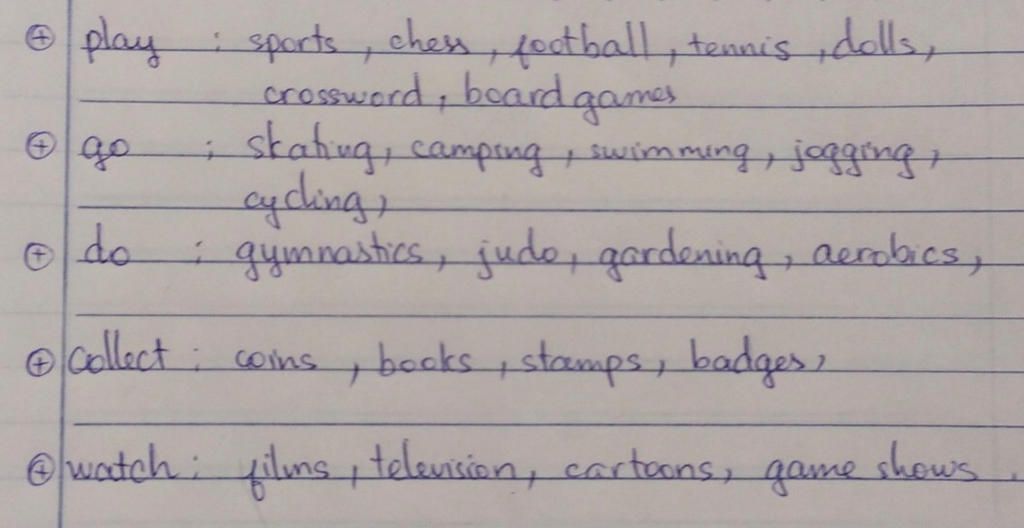 ⊕ play : sports , chess , football , tennis , dolls ,
crossword , board games
⊕ go : skating , camping , swimming , jogging ,
cycling ,
⊕ do : gymnastics , judo , gardening , aerobics ,
⊕ collect : coins , books , stamps , badges ,
⊕ watch : films , television , cartoons , game shows .